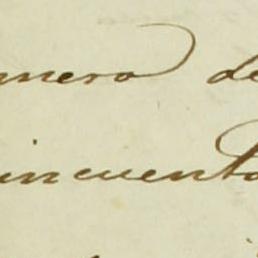 mero de
incuenta